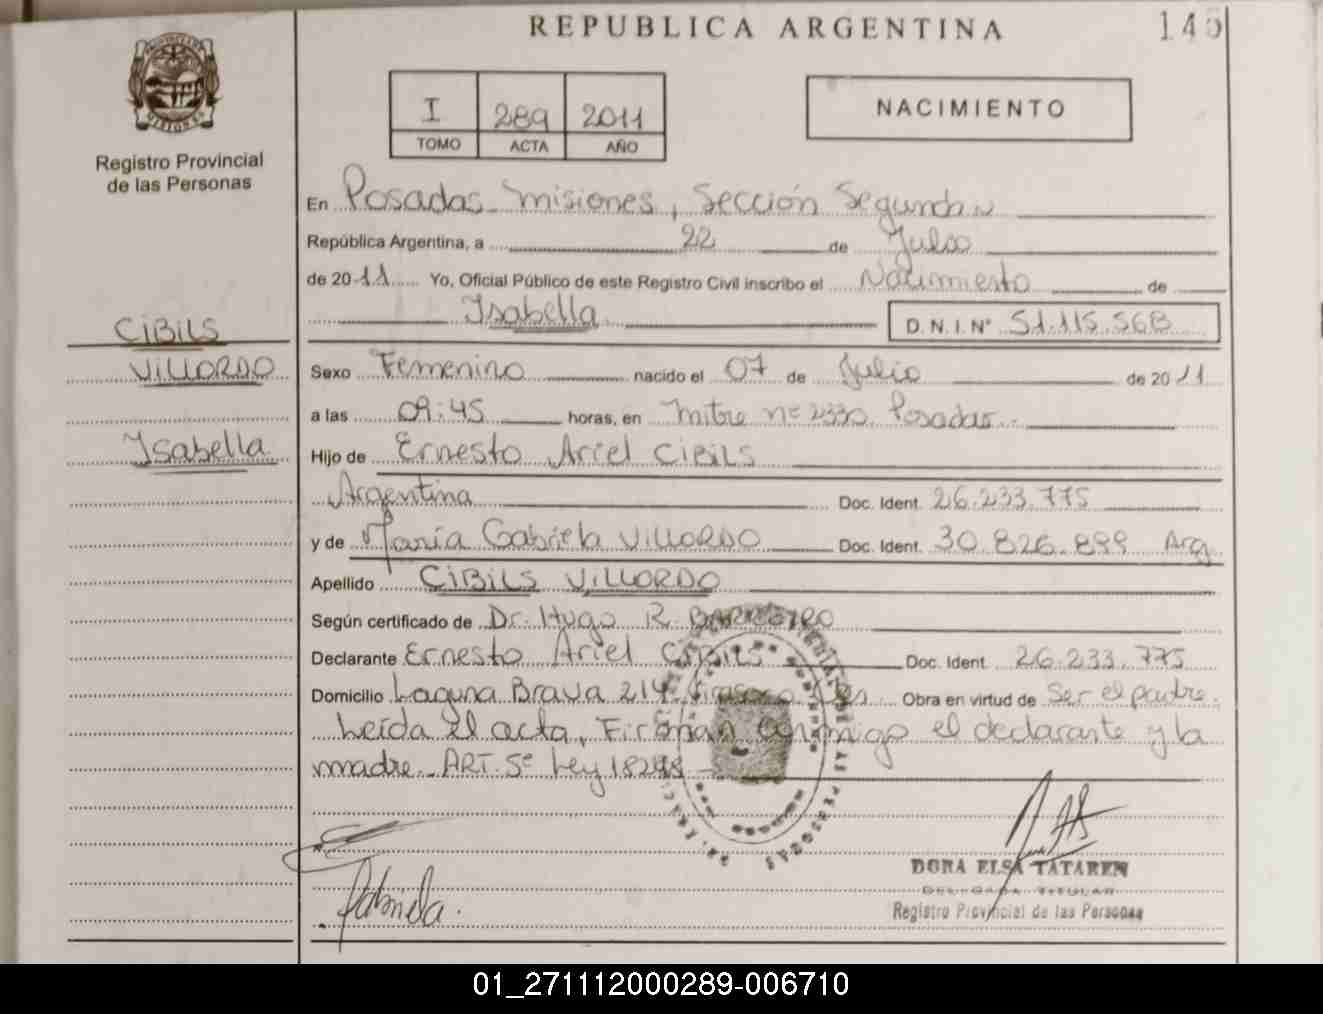 REPUBLICA ARGENTINA
145
PROVINCIA DE
MISIONES
Registro Provincial
de las Personas
I 289 2011
TOMO ACTA AÑO
NACIMIENTO
CIBILS
VILLORDO
Isabella
En Posadas Misiones, Sección Segunda
República Argentina, a 22 de Julio
de 2011 Yo, Oficial Público de este Registro Civil inscribo el Nacimiento de
Isabella D.N.I.Nº 51.115.568
Sexo Femenino nacido el 07 de Julio de 2011
a las 09:45 horas, en Mitre nº 2330 Posadas.
Hijo de Ernesto Ariel CIBILS
Argentina Doc. Ident. 26.233.775
y de María Gabriela VILLORDO Doc. Ident. 30.826.899 Arg.
Apellido CIBILS VILLORDO
Según certificado de Dr. Hugo R. BARREYRO
Declarante Ernesto Ariel CIBILS Doc. Ident. 26.233.775
Domicilio Laguna Brava 214 Virasoro Obra en virtud de Ser el padre.
Leída el acta, Firman conmigo el declarante y la
madre. ART. 5º Ley 18248
Gabriela.
DORA ELSA TATAREN
DELEGADA TITULAR
Registro Provincial de las Personas
01_271112000289-006710